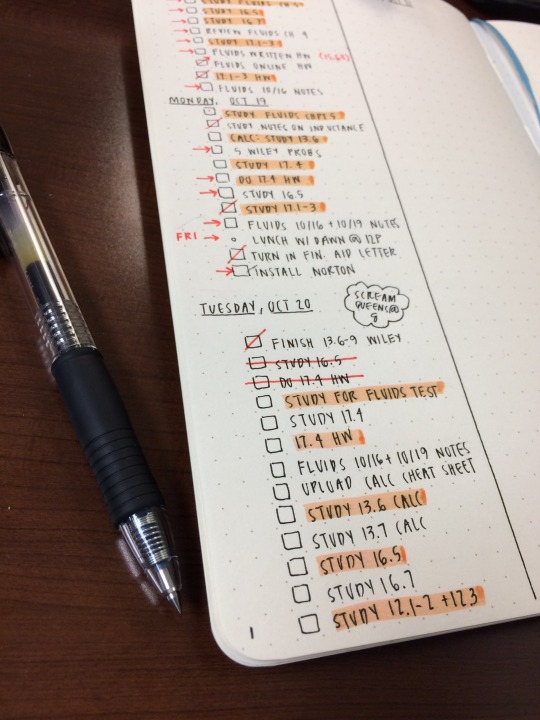 STUDY FLUIDS CH 5
STUDY 16.5
STUDY 16.7
REVIEW FLUIDS CH 4
STUDY 17.1-3
FLUIDS WRITTEN HW
FLUIDS ONLINE HW
17.1-3 HW
FLUIDS 10/16 NOTES
MONDAY, OCT 19
STUDY FLUIDS CHPT 5
STUDY NOTES ON INDUCTANCE
CALC: STUDY 13.6
5 WILEY PROBS
STUDY 17.4
DO 17.4 HW
STUDY 16.5
STUDY 17.1-3
FLUIDS 10/16 + 10/19 NOTES
FRI → LUNCH W/ DAWN @ 12P
TURN IN FIN. AID LETTER
INSTALL NORTON
TUESDAY, OCT 20
SCREAM
QUEENS @
8
FINISH 13.6-9 WILEY
STUDY 16.5
DO 17.4 HW
STUDY FOR FLUIDS TEST
STUDY 17.4
17.4 HW
FLUIDS 10/16 + 10/19 NOTES
UPLOAD CALC CHEAT SHEET
STUDY 13.6 CALC
STUDY 13.7 CALC
STUDY 16.5
STUDY 16.7
STUDY 12.1-2 + 12.3
1